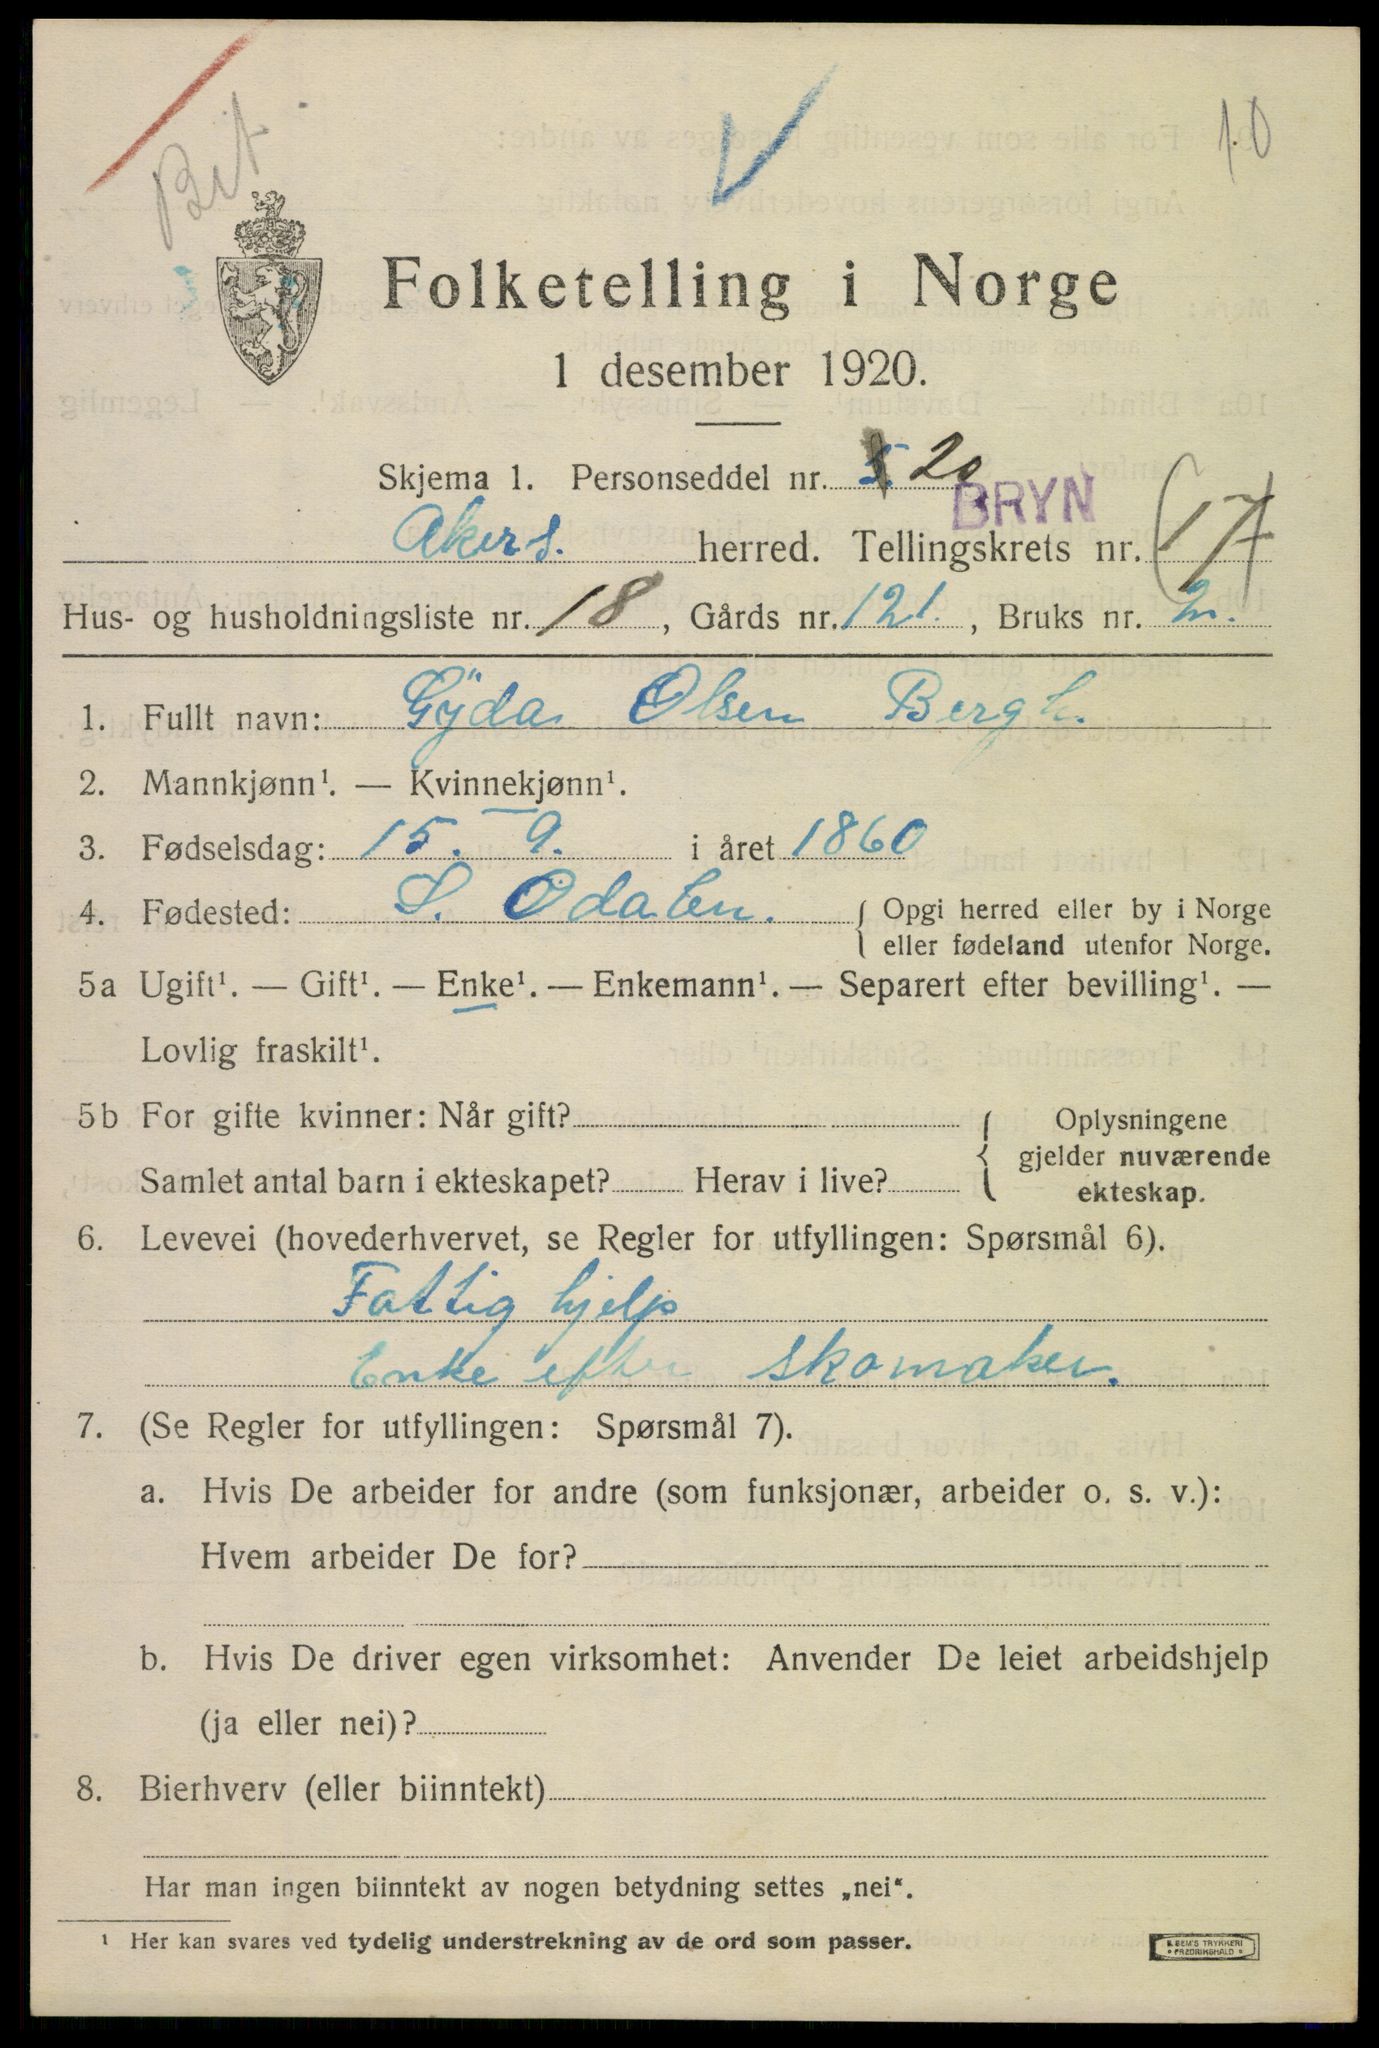 Bit.
10
Folketelling i Norge
1 desember 1920.
Skjema 1. Personseddel nr. 20
BRYN
Akers. herred. Tellingskrets nr. (17)
Hus- og husholdningsliste nr. 18, Gårds nr. 121., Bruks nr. 2.
1. Fullt navn: Gÿda Olsen Bergh.
2. Mannkjønn¹. — Kvinnekjønn¹.
3. Fødselsdag: 15. 9. i året 1860
4. Fødested: S. Odalen. { Opgi herred eller by i Norge
eller fødeland utenfor Norge.
5a Ugift¹. — Gift¹. — Enke¹. — Enkemann¹. — Separert efter bevilling¹. —
Lovlig fraskilt¹.
5b For gifte kvinner: Når gift? { Oplysningene
gjelder nuværende
Samlet antal barn i ekteskapet? Herav i live? ekteskap.
6. Levevei (hovederhvervet, se Regler for utfyllingen: Spørsmål 6).
Fattig hjelp
Enke efter skomaker.
7. (Se Regler for utfyllingen: Spørsmål 7).
a. Hvis De arbeider for andre (som funksjonær, arbeider o. s. v.):
Hvem arbeider De for?
b. Hvis De driver egen virksomhet: Anvender De leiet arbeidshjelp
(ja eller nei)?
8. Bierhverv (eller biinntekt)
Har man ingen biinntekt av nogen betydning settes „nei“.
¹ Her kan svares ved tydelig understrekning av de ord som passer.
E. SEM'S TRYKKERI
• FREDRIKSHALD •